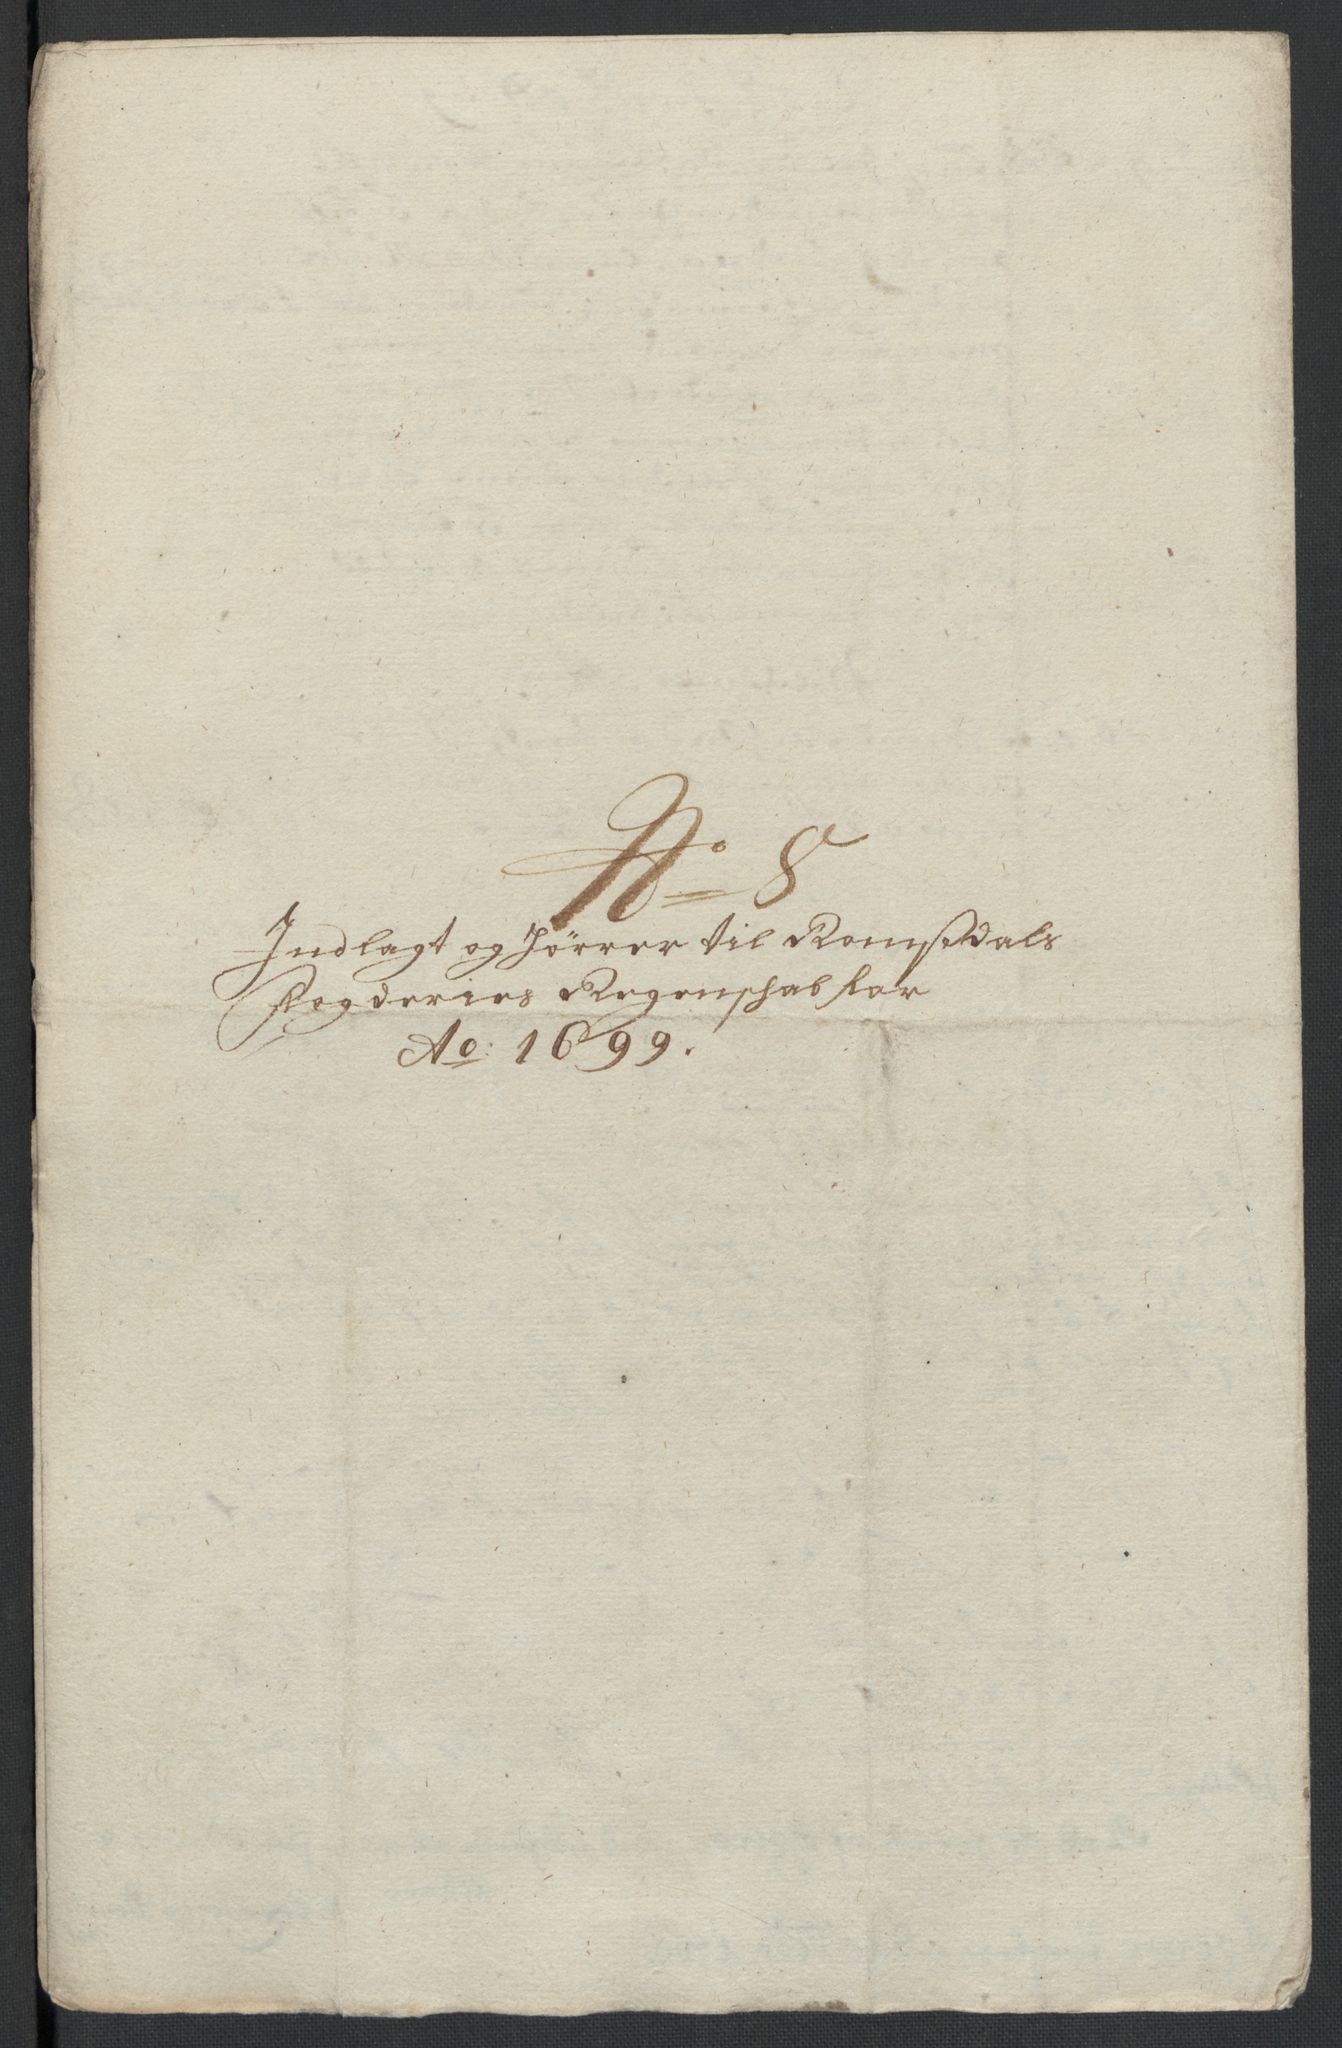 No 8
Indlagt og hörrer til Romsdals
Fogderies Regenschab for
Ao: 1699.